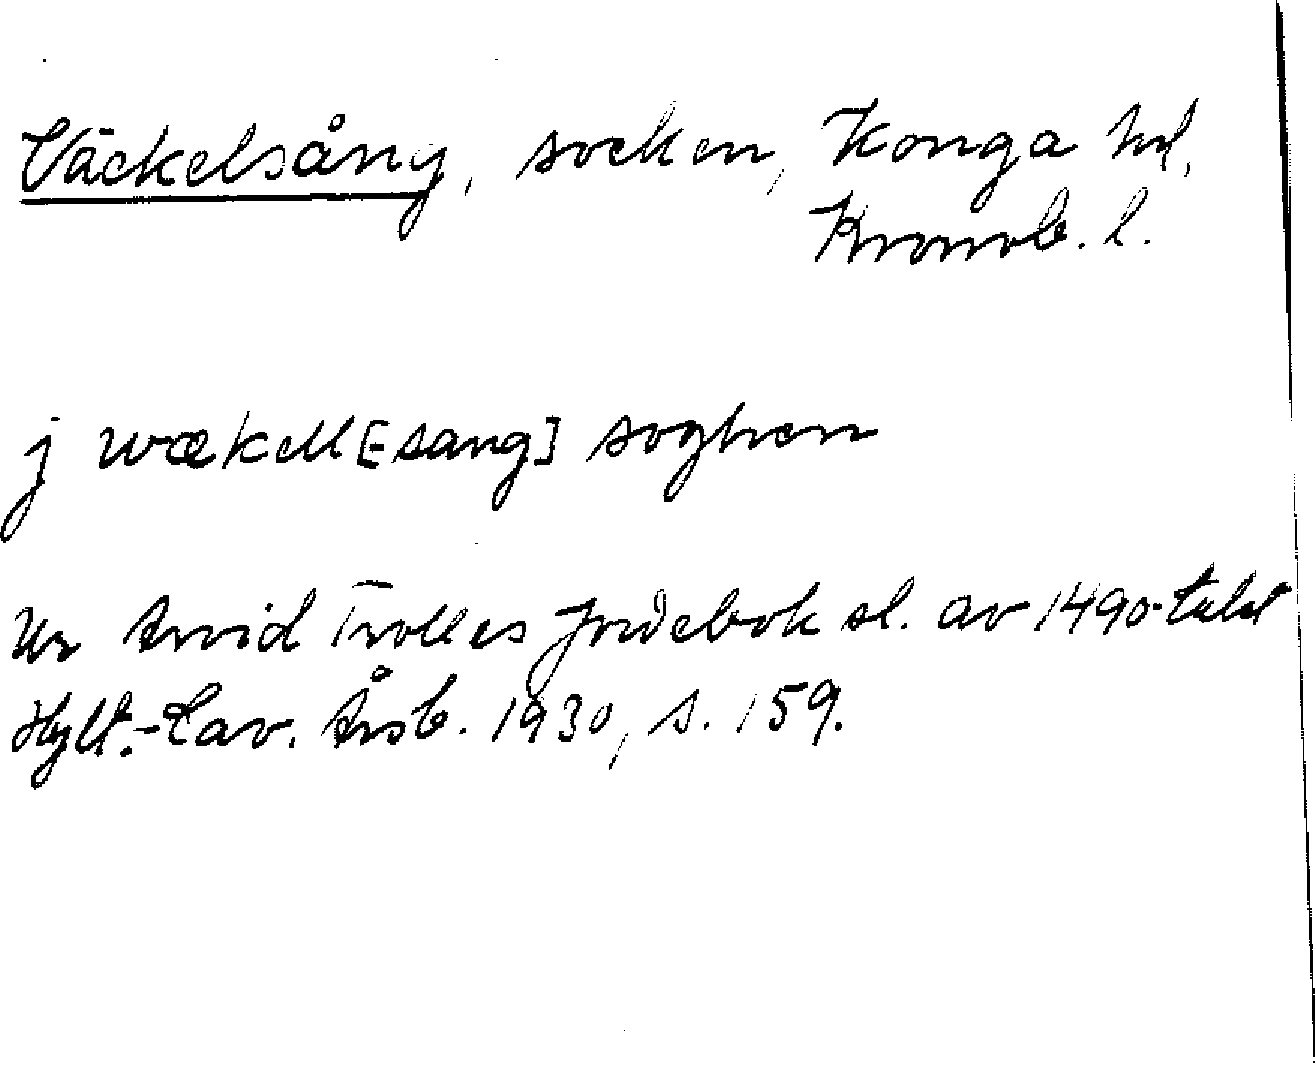 Väckelsång, socken, Konga hd,
Kronob. l.
j wækell[sang] soghen
Ur Arvid Trolles Jordebok sl. av 1490-talet
Hylt.-Cav. Årsb. 1930, s. 159.